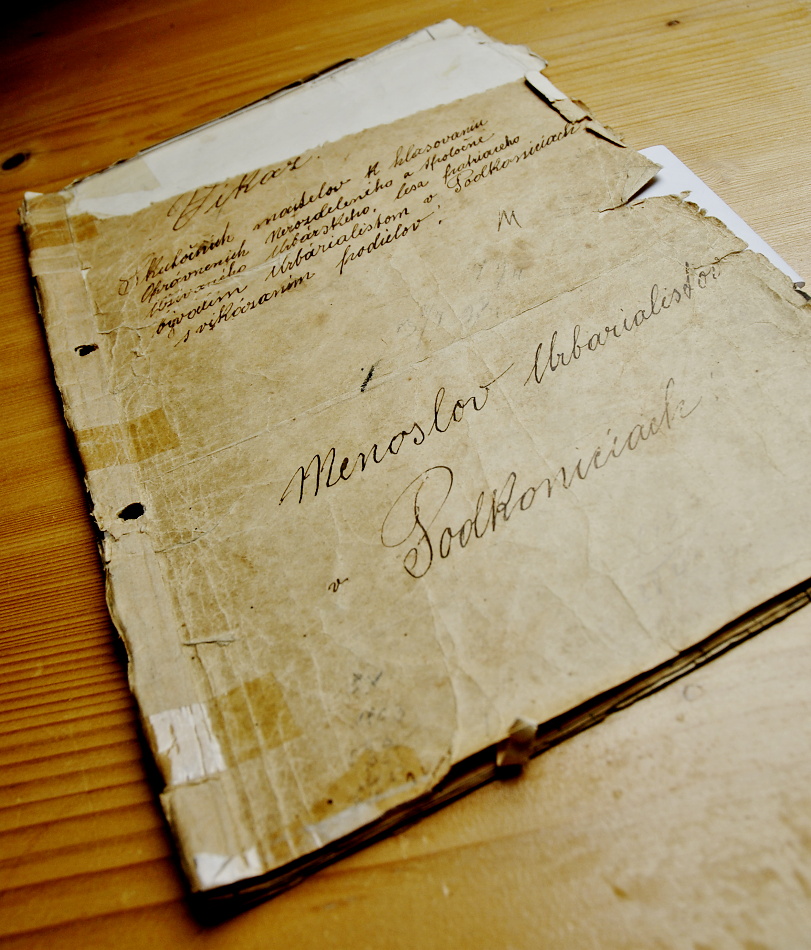 Víkaz.
O skutočních majtelov k hlasovaniu
oprávnenich Nerozdeleného a spoločne
Užívaného Urbárskeho, lesa patriaceho
bývalim Urbárialistom v Podkoniciach
s vikázaním podielov.
M
Menoslov Urbarialistov
v Podkoniciach